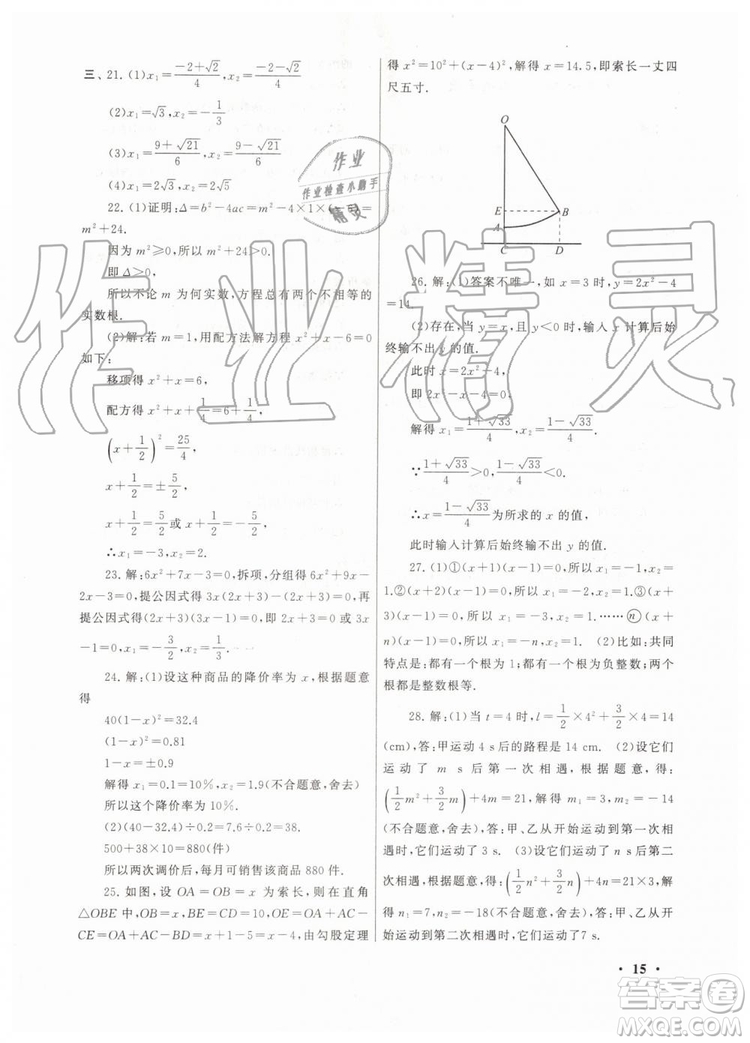 三、21. (1)x₁=(-2+√2)/4, x₂=(-2-√2)/4
(2)x₁=√3, x₂=-1/3
(3)x₁=(9+√21)/6, x₂=(9-√21)/6
(4)x₁=√2, x₂=2√5
22. (1)证明: Δ=b²-4ac=m²-4×1×
m²+24.
因为 m²≥0, 所以 m²+24>0.
即 Δ>0.
所以不论 m 为何实数, 方程总有两个不相等的
实数根.
(2)解: 若 m=1, 用配方法解方程 x²+x-6=0
如下:
移项得 x²+x=6,
配方得 x²+x+1/4=6+1/4,
(x+1/2)²=25/4
x+1/2=±5/2
x+1/2=5/2或x+1/2=-5/2
∴x₁=-3, x₂=2.
23. 解: 6x²+7x-3=0; 拆项, 分组得 6x²+9x-
2x-3=0, 提公因式得 3x(2x+3)-(2x+3)=0, 再
提公因式得(2x+3)(3x-1)=0, 即 2x+3=0 或 3x-
1=0, x₁=-3/2, x₂=1/3.
24. 解: (1)设这种商品的降价率为 x, 根据题意
得
40(1-x)²=32.4
(1-x)²=0.81
1-x=±0.9
解得 x₁=0.1=10%, x₂=1.9(不合题意, 舍去)
所以这个降价率为 10%.
(2)(40-32.4)÷0.2=38.
500+38×10=880(件)
所以两次调价后, 每月可销售该商品 880 件.
25. 如图, 设 OA=OB=x 为索长, 则在直角
△OBE 中, BE=CD=10, OE=OA+AC-
CE=OA+AC-BD=x+1-5=x-4, 由勾股定理
得 x²=10²+(x-4)², 解得 x=14.5, 即索长一丈四
尺五寸.
O
E
B
A
C
D
26. 解: (1)答案不唯一, 如 x=3 时, y=2x²-4
=14.
(2)存在, 当 y=x, 且 y<0 时, 输入 x 计算后始
终输不出 y 的值.
此时 x=2x²-4,
即 2x²-x-4=0.
解得 x₁=(1+√33)/4, x₂=(1-√33)/4.
∵(1+√33)/4>0, (1-√33)/4<0.
∴x=(1-√33)/4为所求的 x 的值,
此时输入计算后始终输不出 y 的值.
27. (1)①(x+1)(x-1)=0, 所以 x₁=-1, x₂=
1.②(x+2)(x-1)=0, 所以 x₁=-2, x₂=1.③(x+
3)(x-1)=0, 所以 x₁=-3, x₂=1.……ⓝ(x+
n)(x-1)=0, 所以 x₁=-n, x₂=1. (2)比如: 共同
特点是: 都有一个根为 1; 都有一个根为负整数; 两个
根都是整数根等.
28. 解: (1)当 t=4 时, l=1/2×4²+3/2×4=14
(cm), 答: 甲运动 4 s 后的路程是 14 cm. (2)设它们
运动了 m s 后第一次相遇, 根据题意, 得:
(1/2m²+3/2m)+4m=21, 解得 m₁=3, m₂=-14
(不合题意, 舍去), 答: 甲、乙从开始运动到第一次相遇
时, 它们运动了 3 s. (3)设它们运动了 n s 后第二
次相遇, 根据题意, 得: (1/2n²+3/2n)+4n=21×3,
解得 n₁=7, n₂=-18(不合题意, 舍去), 答: 甲、乙从开
始运动到第二次相遇时, 它们运动了7 s.
· 15 ·
作业
作业检查小助手
精灵
作业精灵
答案圈
MXQE.COM